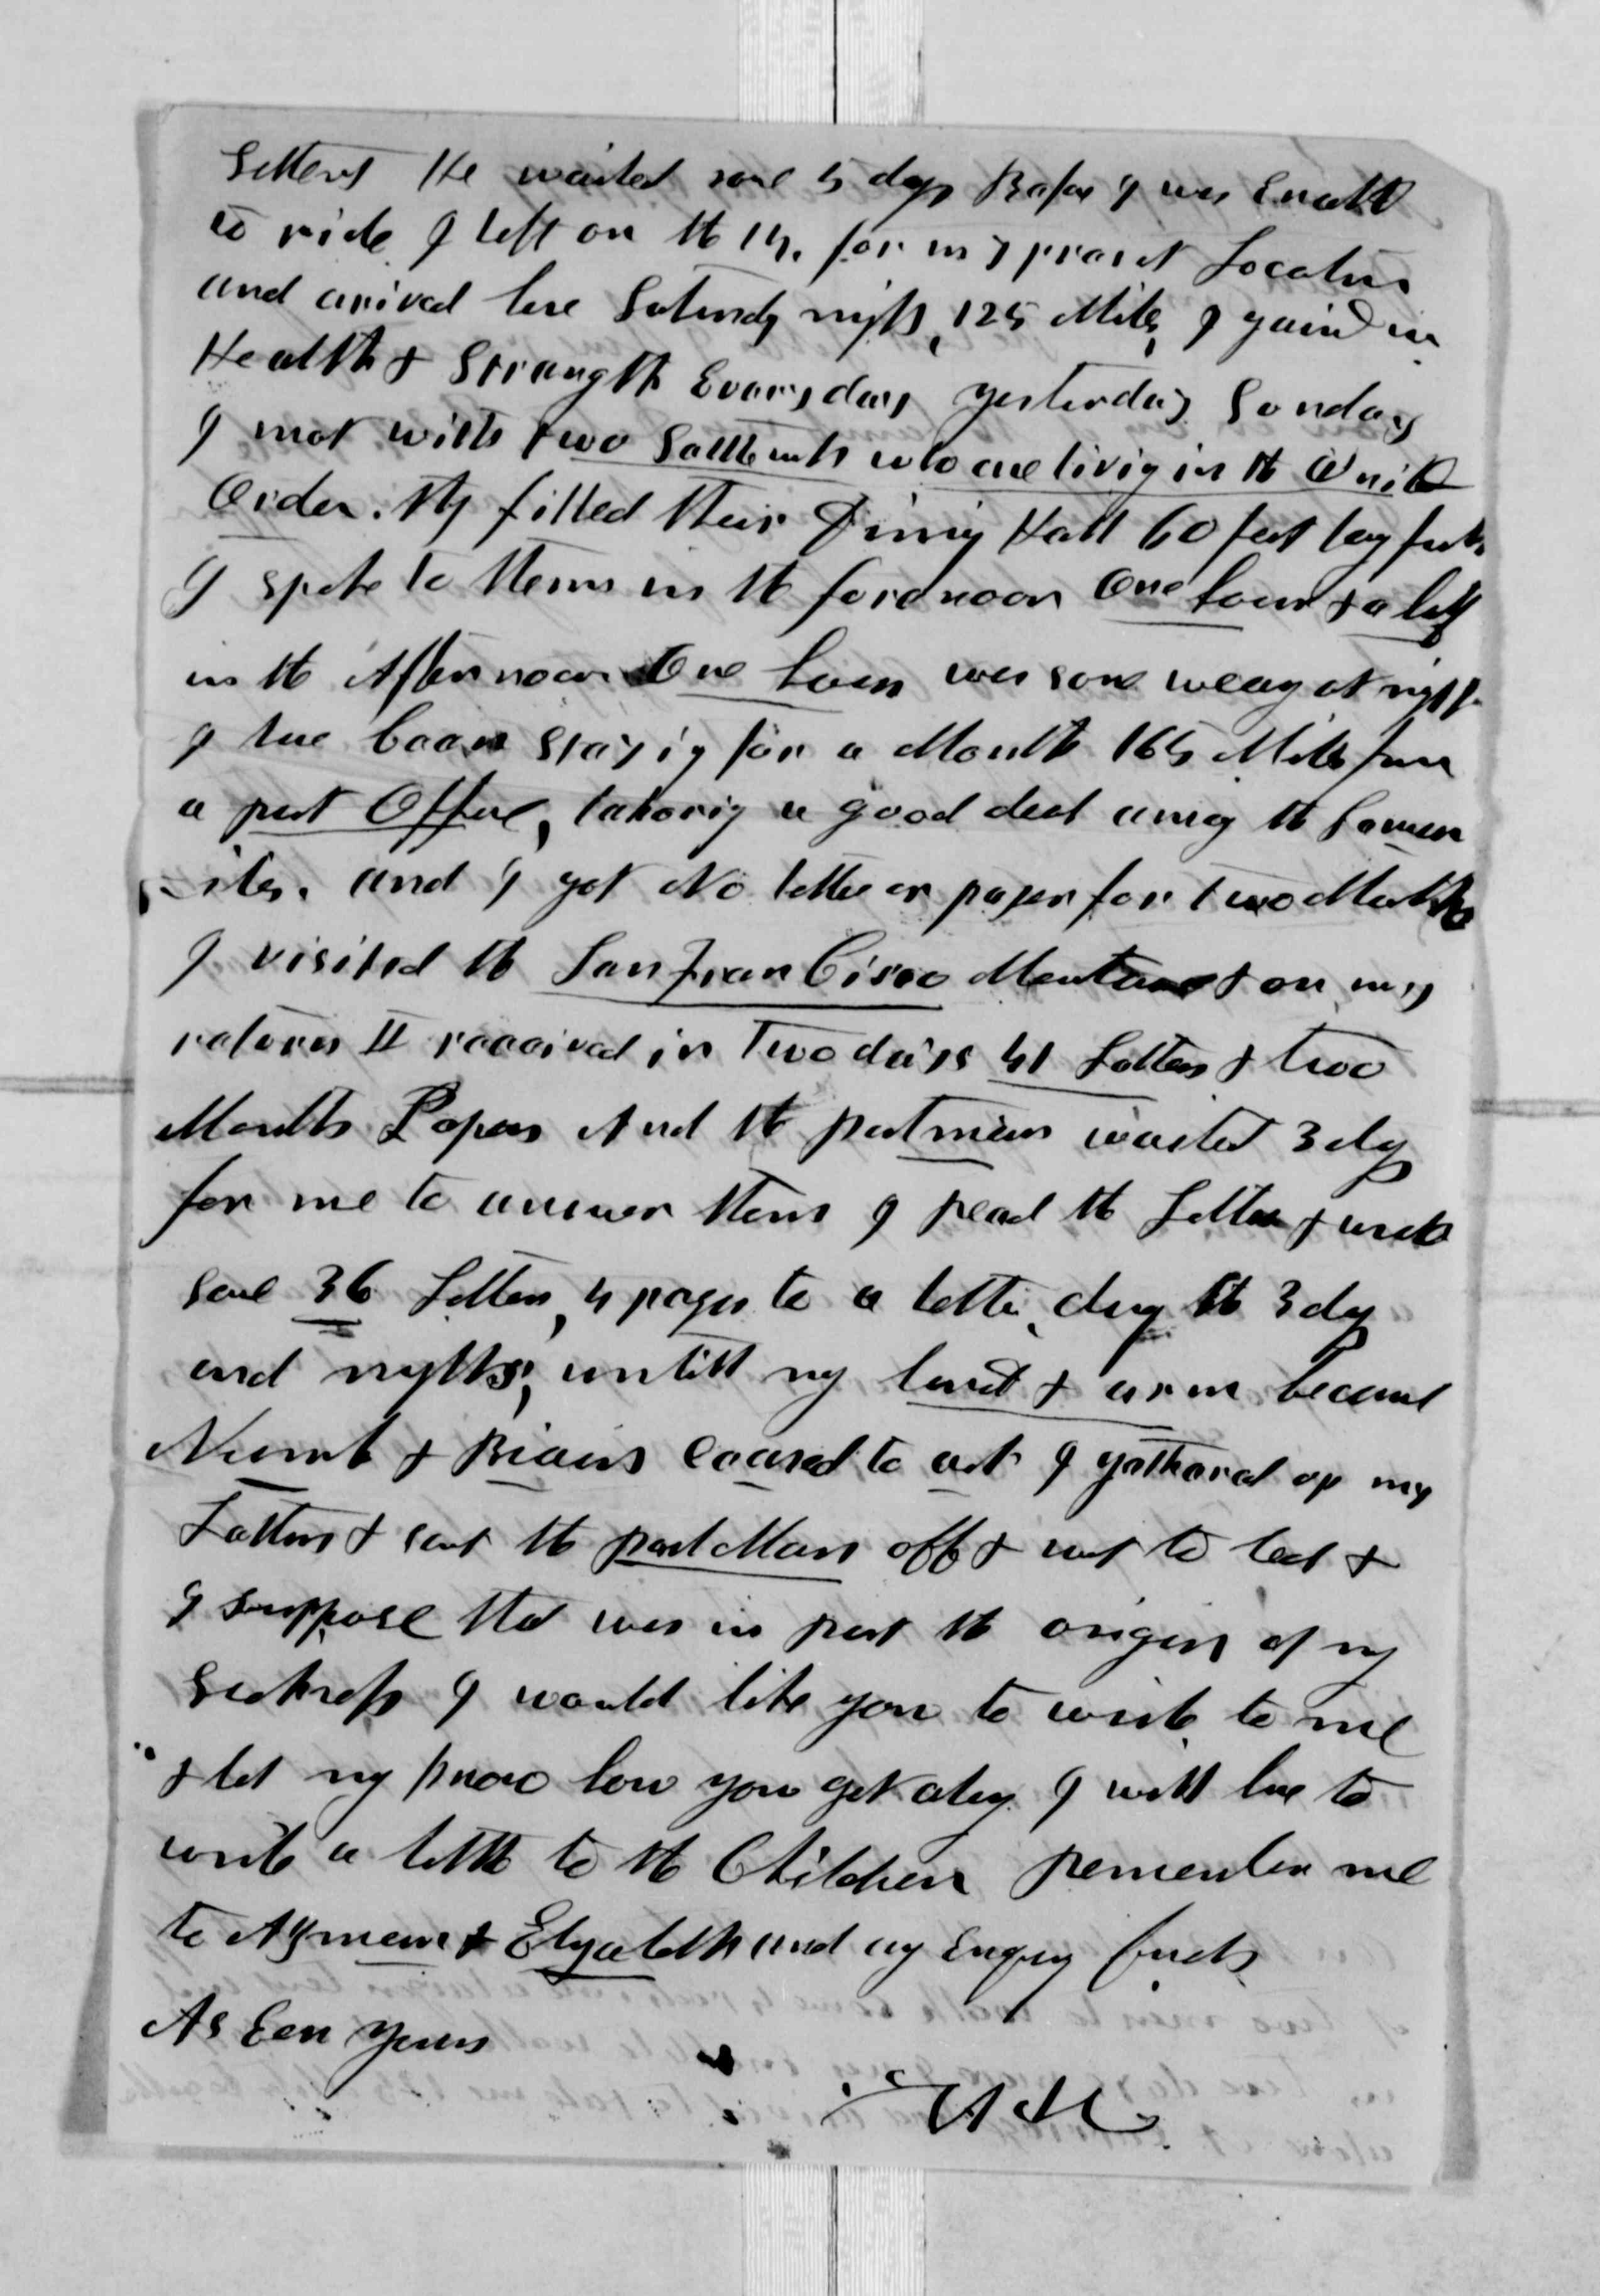 Settlers He waited some 5 days Before I was Enabled
to ride I left on the 14, for my present Location
and arived here Saturdy night, 125 Miles, I gained in
Health & Strength Evry day yesterday Sunday
I met with two Settlemts who are livig in the United
Order. they filled their Dinig Hall 60 feet log full
I spoke to them in the forenoon One hour & a half
in the Afternoon One hour was some weary at night
I have been stayig for a Month 165 Miles from
a post Office, laborig a good deal amog the Laman
ites. and I got No letter or paper for two Months
I visited the San Francisco Mountains & on my
return I received in Two days 41 Letters & two
Months Papers And the postman waited 3 dys
for me to answer them I read the Letters & wrote
some 36 Letters, 4 pages to a letter, durig the 3 dys
and nights, untill my hand & arm became
Numb & Brain ceased to act I gathered up my
Letters & sent the post Man off & went to bed &
I suppose that was in part the origin of my
Sickness I would like you to write to me
& let my know how you get alog I will have to
write a letter to the Children remember me
to & Elizabeth and any Enquirig friends
As Ever Yours
W